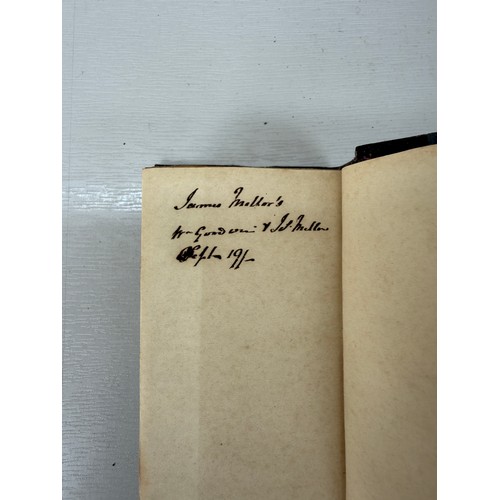 James Mellor's
Wm Goodwin & Js. Mellor
Sept 19/-